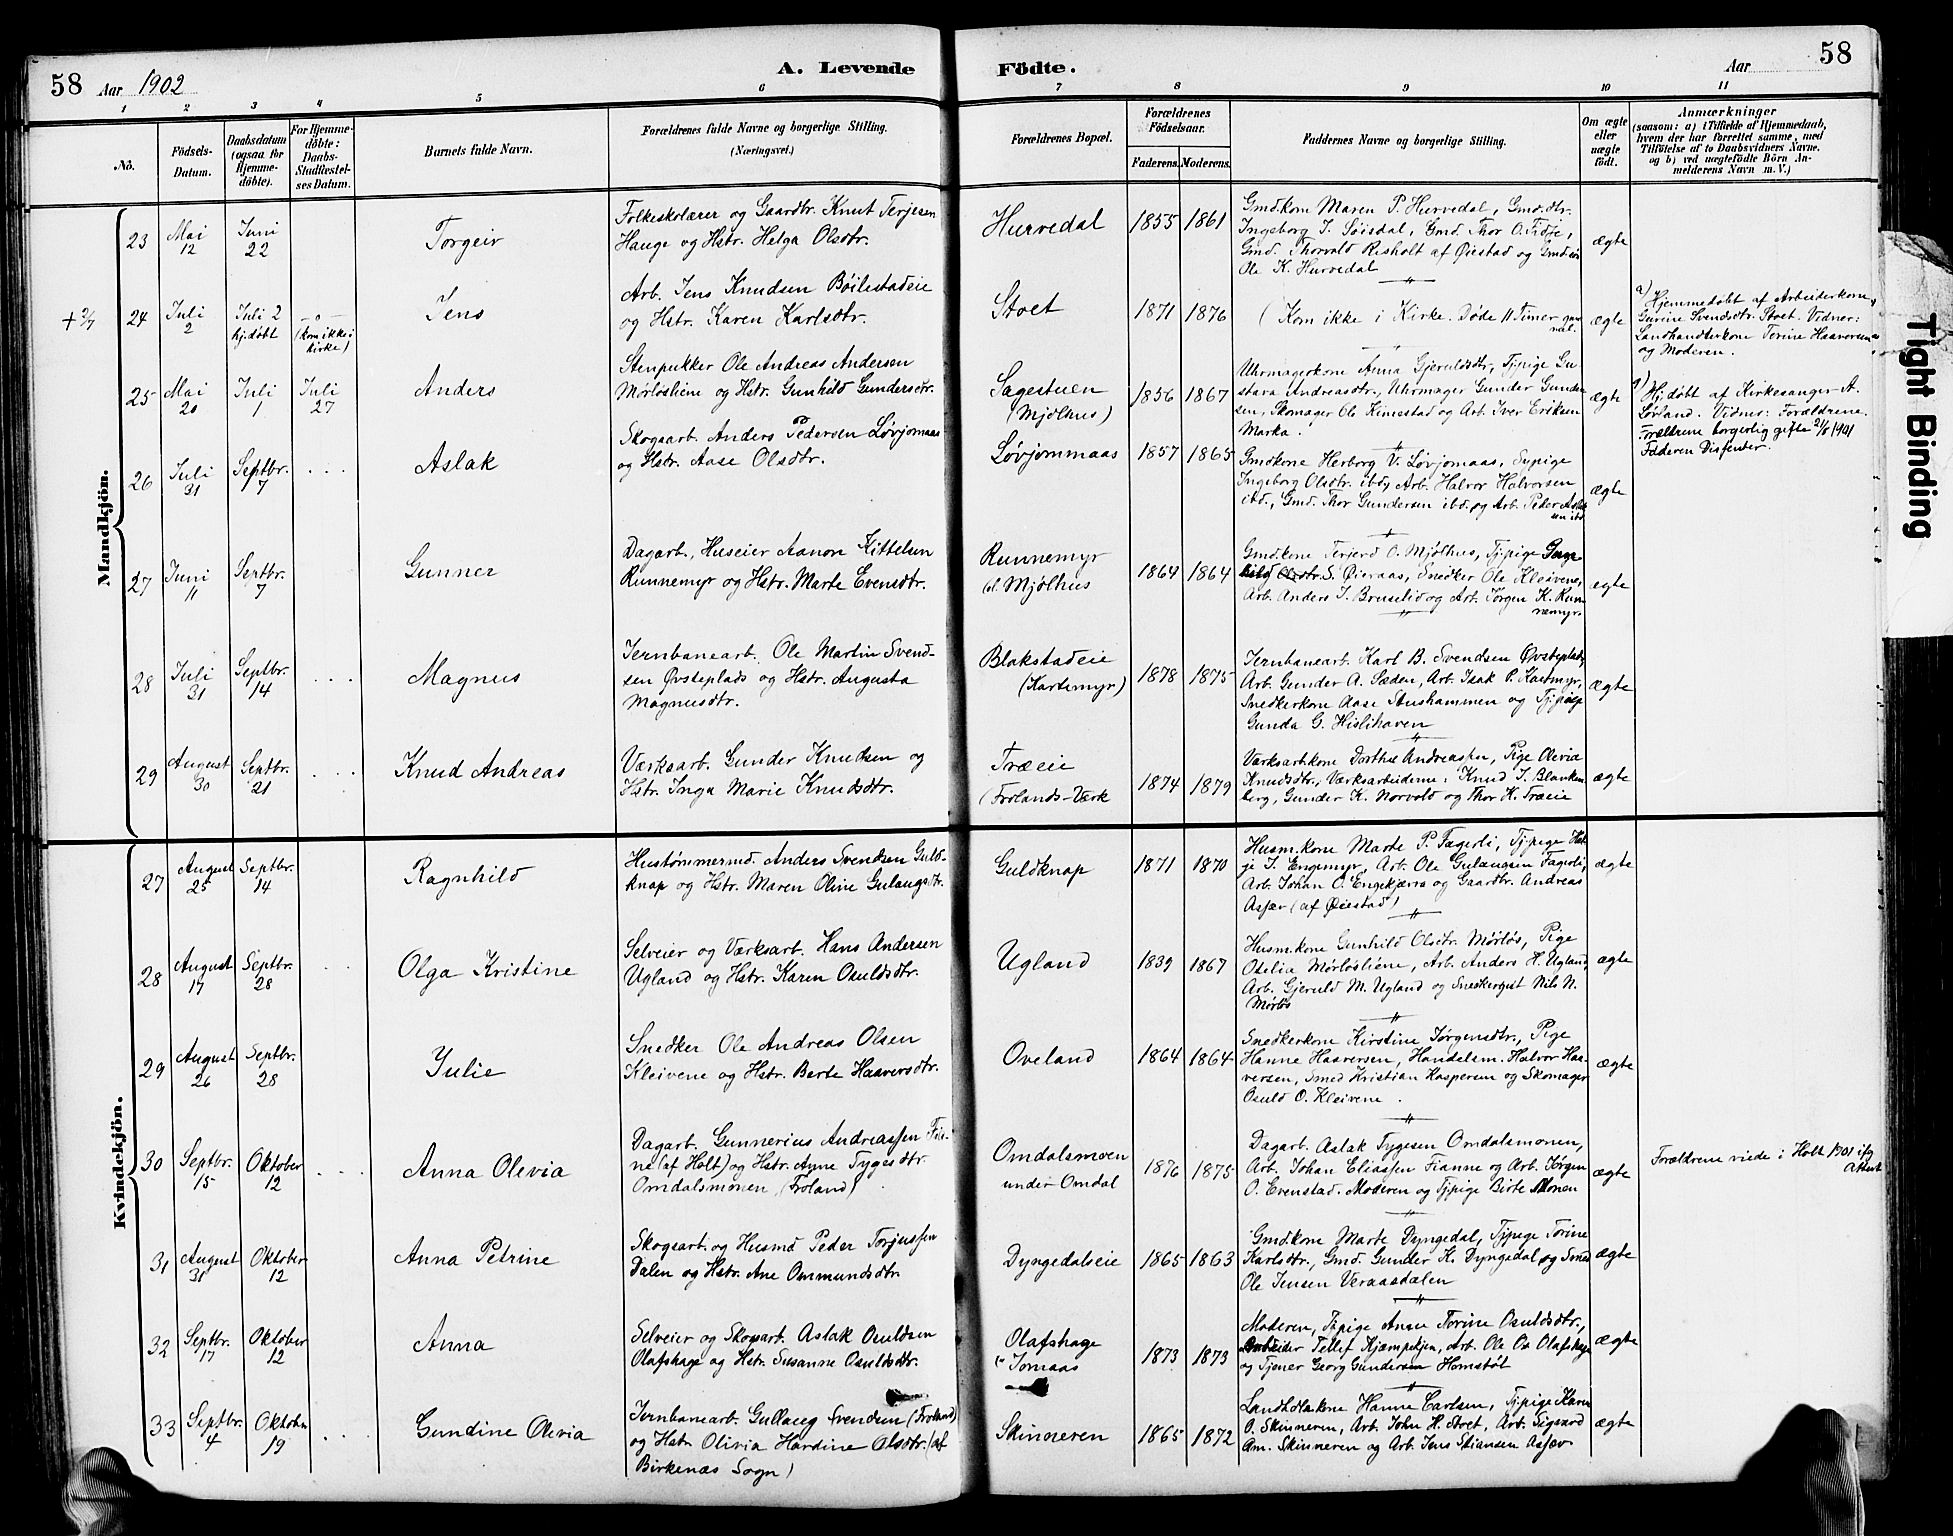 58 Aar 1902 A. Levende Födte. Aar 58
1 2 3 4 5 6 7 8 9 10 11
No.
Födsels-Datum.
Daabsdatum (ogsaa for Hjemmedöbte).
For Hjemmedöbte: Daabs-Stadfæstelses Datum.
Barnets fulde Navn.
Forældrenes fulde Navne og borgerlige Stilling.
(Næringsvei.)
Forældrenes Bopæl.
Forældrenes Födselsaar.
Faderens. Moderens.
Faddernes Navne og borgerlige Stilling.
Om ægte eller uægte födt.
Anmærkninger
(saasom: a) i Tilfælde af Hjemmedaab,
hvem der har forrettet samme, med
Tilföielse af to Daabsvidners Navne.
og b) ved uægtefödte Börn An-
melderens Navn m. V.)
Mandkjön.
23 Mai 12 Juni 22 Torgeir
Folkeskolærer og Gaardbr. Knut Terjesen
Hauge og Hstr. Helga Olsdtr.
Hurvedal 1855 1861
Gmd.kone Maren P. Hurvedal, Gmd.dtr.
Ingeborg J. Söisdal, Gmd. Thor O. Fidje,
Gmd. Thorvald Risholt af Øiestad og
Ole K. Hurvedal
ægte
+ 2/7 24 Juli 2 Juli 2 hj.døbt -"- (kom ikke i kirke) Jens
Arb. Jens Knudsen Böilestadeie
og Hstr. Karen Karlsdtr.
Stoet 1871 1876
(Kom ikke i Kirke. Døde 11 Timer gammal.
ægte
a) Hjemmedøbt af Arbeiderkone
Gurine Svendsdtr. Stoet. Vidner:
Landhandlerkone Torine Haavorsen
og Moderen.
25 Mai 20 Juli 1 Juli 27 Anders
Stenpukker Ole Andreas Andersen
Mørløsliene og Hstr. Gunhild Gundersdtr.
Sagestuen
(Mjølhus)
1856 1867
Uhrmagerkone Anna Gjeruldsdtr, Tj.pige Gu-
stava Andreasdtr., Uhrmager Gunder Gunder-
sen, Skomager Ole Kimestad og Arb. Iver Eriksen
Marka.
ægte
a) Hj.døbt af Kirkesanger A.
Lörland. Vidner: Forældrene.
Forældrene borgerlig gifte 21/8 1901
Faderen Dissenter.
26 Juli 31 Septbr. 7 Aslak
Skogsarb. Anders Pedersen Løvjomaas
og Hstr. Aase Olsdtr.
Løvjommaas 1857 1865
Gmdkone Herborg V. Løvjomaas, Sypige
Ingeborg Olsdtr. ibd, Arb. Halvor Halvorsen
ibd., Gmd. Thor Gundersen ibd. og Arb. Peder Aslak-
sen ibd
ægte
27 Juni 11 Septbr. 7 Gunner
Dagarb., Huseier Aanon Kittelsen
Runnemyr og Hstr. Marte Evensdtr.
Runnemyr
u. Mjølhus
1864 1864
Gmd.kone Terjerd O. Mjølhus, Tj.pige
S. Øieraas, Snedker Ole Kleivene,
Arb. Anders J. Bruseliø og Arb. Jørgen K. Run-
nemyr.
ægte
28 Juli 31 Septbr. 14 Magnus
Jernbanearb. Ole Martin Svend-
sen Øvsteplads og Hstr. Augusta
Magnusdtr.
Blakstadeie
(Kartemyr)
1878 1875
Jernbanearb. Karl B. Svendsen Øvsteplads,
Arb. Gunder A. Sæden, Arb. Isak P. Kartmyr,
Snedkerkone Aase Stenshammen og Tj.pige
Gunda G. Hislihaven
ægte
29 August 30 Septbr. 21 Knud Andreas
Værksarb. Gunder Knudsen og
Hstr. Inga Marie Knudsdtr.
Træeie
(Frolands-Værk
1874 1879
Værksarb.kone Dorthe Andreassen, Pige Olevia
Knudsdtr., Værksarbeiderne: Knud J. Blanken-
berg, Gunder K. Norvold og Thor K. Træeie
ægte
Kvindekjön.
27 August 25 Septbr. 14 Ragnhild
Hustømmermd. Anders Svendsen Guld-
knap og Hstr. Maren Oline Gulaugsdtr.
Guldknap 1871 1870
Husm.kone Marte P. Fagerli, Tj.pige Hel-
je J. Engemyr, Arb. Ole Gulaugsen Fagerli,
Arb. Johan O. Engekjærra og Gaardbr. Andreas
Asfær (af Øiestad)
ægte
28 August 17 Septbr. 28 Olga Kristine
Selveier og Værksarb. Hans Andersen
Ugland og Hstr. Karen Osuldsdtr.
Ugland 1839 1867
Husm.kone Gunhild Olsdtr. Mørløs, Pige
Otelia Mørløsliene, Arb. Anders H. Ugland,
Arb. Gjeruld M. Ugland og Snedkergut Nils N.
Mørløs
ægte
29 August 26 Septbr. 28 Julie
Snedker Ole Andreas Olsen
Kleivene og Hstr. Berte Haaversdtr.
Oveland 1864 1864
Snedkerkone Kirstine Jørgensdtr., Pige
Hanne Haaversen, Handelsm. Halvor Haa-
versen, Smed Kristian Kaspersen og Skomager
Osuld O. Kleivene.
ægte
30 Septbr. 15 Oktober 12 Anna Olevia
Dagarb. Gunnerius Andreassen Fei-
ne (af Holt) og Hstr. Ayne Tygesdtr
Omdalsmonen (Froland)
Omdalsmoen
under Omdal
1876 1875
Dagarb. Aslak Tygesen Omdalsmonen,
Arb. Johan Eliassen Fianne og Arb. Jørgen
O. Evenstad. Moderen og Tj.pige Birte Monen
ægte
Forældrene viede i Holt 1901 ifg
Attest
31 August 31 Oktober 12 Anna Petrine
Skogsarb. og Husmd Peder Torjussen
Dalen og Hstr. Ane Ommundsdtr.
Dyngedalseie 1865 1863
Gmd.kone Marte Dyngedal, Tj.pige Torine
Karlsdtr., Gmd. Gunder K. Dyngedal og Smed
Ole Jensen Veraasdalen
ægte
32 Septbr. 17 Oktober 12 Anna
Selveier og Skogarb. Aslak Osuldsen
Olafshage og Hstr. Susanne Osuldsdtr.
Olafshage
Jomaas
1873 1873
Moderen, Tj.pige Anne Torine Osuldsdtr.,
Tellef Kjæmpekjen, Arb. Ole Os. Olafshage
og Tjener Georg Gundersen Homstøl
ægte
33 Septbr. 4 Oktober 19 Gundine Olevia
Jernbanearb. Gullaug Svendsen (Froland)
og Hstr Olivia Hardine Olsdtr. (af
Birkenæs Sogn)
Skinneren 1865 1872
Landhdl.kone Hanne Carlsen, Tj.pige Karen
O. Skinneren, Arb. John H. Aret, Arb. Sigvard
Am. Skinneren og Arb. Jens Stiansen Asfær
ægte
Tight Binding